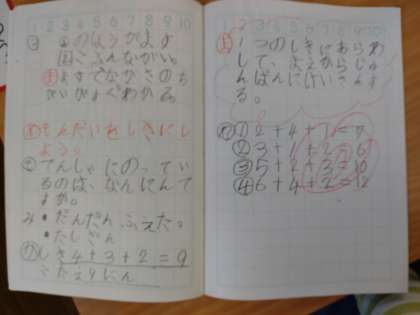 1 2 3 4 5 6 7 8 9 10
のようがます
国ごぶんながい。
ますでながさのち
がいがよくわかる。
もんだいをしきにし
よう。
でんしゃにのってい
るのは、なんにんで
すか。
み・だんだんふえた。
・たしざん
しき4+3+2=9
こたえ9にん
2 3 4 5 6 7 8 9 10
ま 1つのしきにあらわ
して、まえからじゅ
んばんにけいさんす
る。
①2+4+1=7
②3+1+2=6
③5+2+3=10
④6+4+2=12